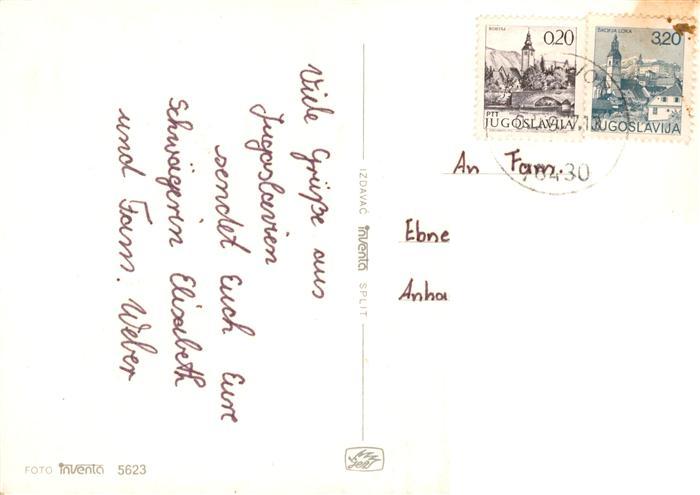 Viele Grüße aus
Jugoslavien
sendet Euch Eure
Schwägerin Elisabeth
und Fam. Weber
IZDAVAČ inventa SPLIT
FOTO inventa 5623
BOHINJ
0.20
PTT
JUGOSLAVIJA
ŠKOFJA LOKA
3,20
JUGOSLAVIJA
An Fam.
Ebne
Anha